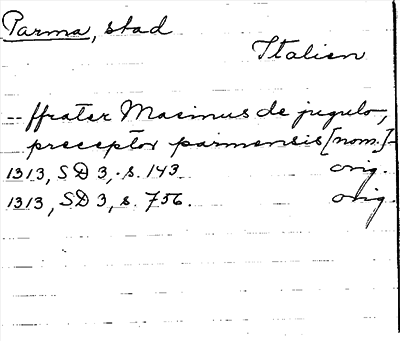 Parma, stad
Italien
-- ffrater Macinus de jugulo,
preceptor parmensis [nom.]-
1313, SD 3, s. 143 orig.
1313, SD 3, s. 756. orig.